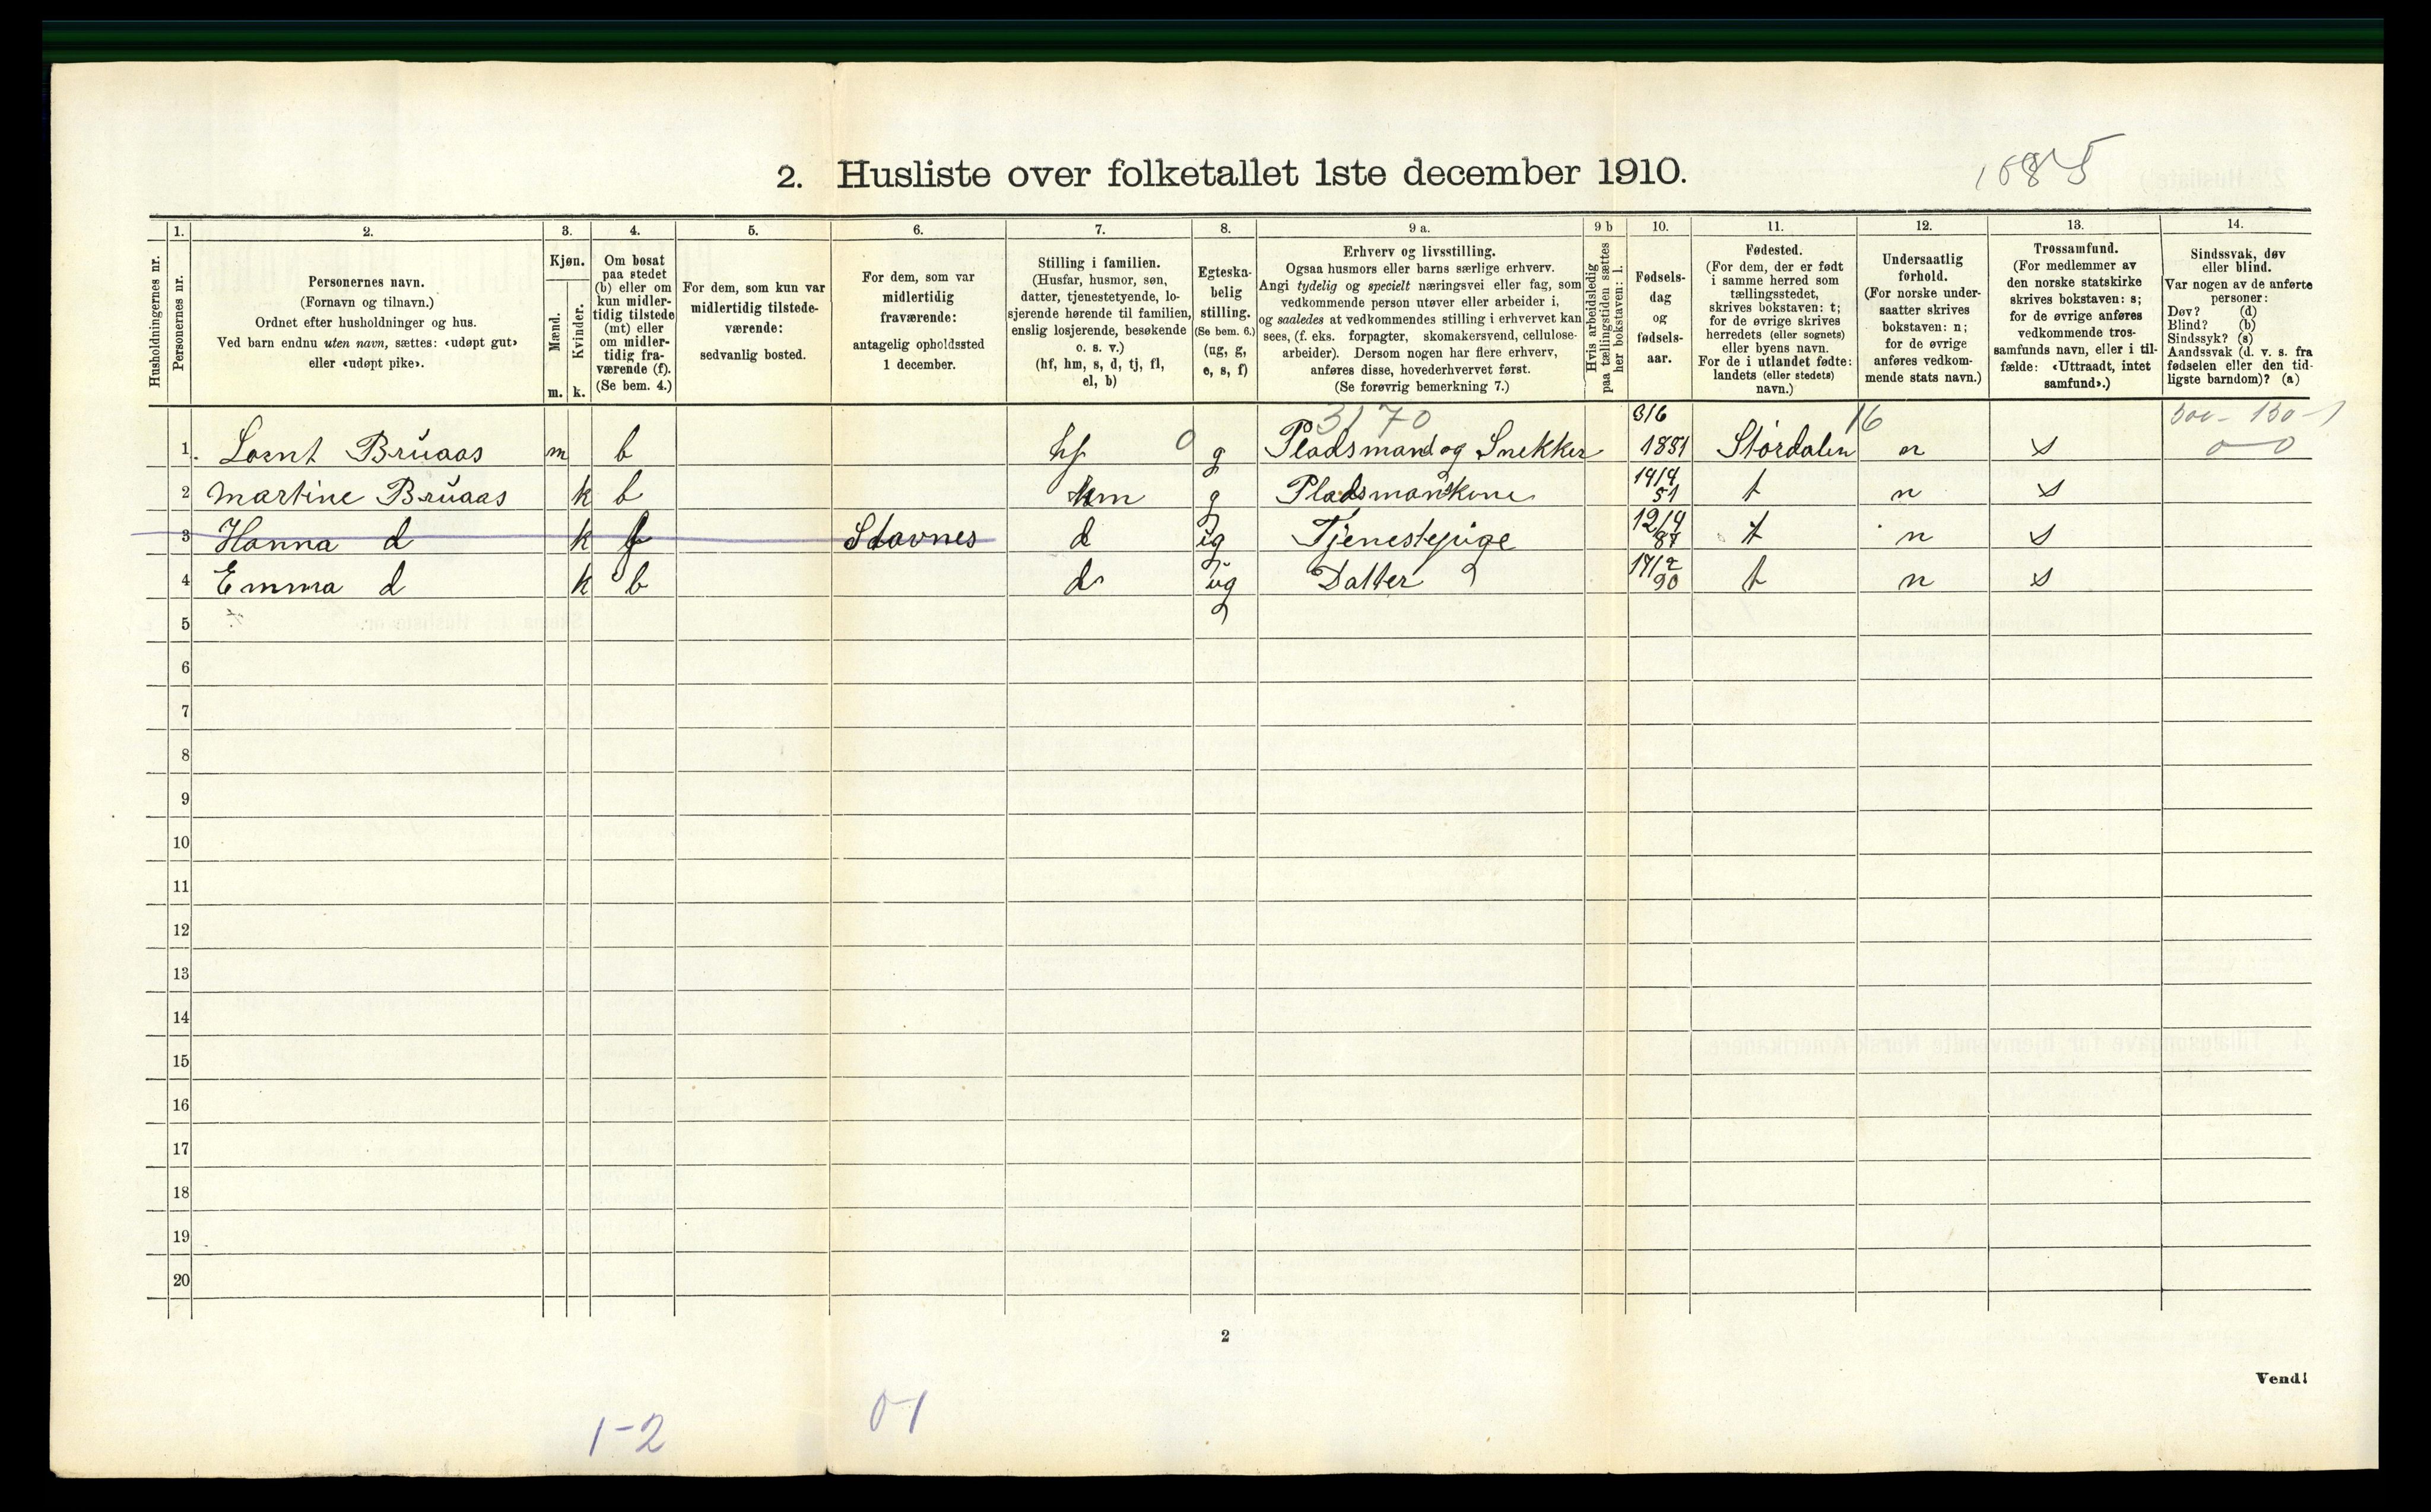 2. Husliste over folketallet 1ste december 1910.
1885
Husholdningernes nr.
1.
Personernes nr.
2.
Personernes navn.
(Fornavn og tilnavn.)
Ordnet efter husholdninger og hus.
Ved barn endnu uten navn, sættes: «udøpt gut»
eller «udøpt pike».
3.
Kjøn.
Mænd.
Kvinder.
m. k.
4.
Om bosat
paa stedet
(b) eller om
kun midler-
tidig tilstede
(mt) eller
om midler-
tidig fra-
værende (f).
(Se bem. 4.)
5.
For dem, som kun var
midlertidig tilstede-
værende:
sedvanlig bosted.
6.
For dem, som var
midlertidig
fraværende:
antagelig opholdssted
1 december.
7.
Stilling i familien.
(Husfar, husmor, søn,
datter, tjenestetyende, lo-
sjerende hørende til familien,
enslig losjerende, besøkende
o. s. v.)
(hf, hm, s, d, tj, fl,
el, b)
8.
Egteska-
belig
stilling.
(Se bem. 6.)
(ug, g,
e, s, f)
9 a.
Erhverv og livsstilling.
Ogsaa husmors eller barns særlige erhverv.
Angi tydelig og specielt næringsvei eller fag, som
vedkommende person utøver eller arbeider i,
og saaledes at vedkommendes stilling i erhvervet kan
sees, (f. eks. forpagter, skomakersvend, cellulose-
arbeider). Dersom nogen har flere erhverv,
anføres disse, hovederhvervet først.
(Se forøvrig bemerkning 7.)
9 b
Hvis arbeidsledig
paa tællingstiden sættes
her bokstaven: l.
10.
Fødsels-
dag
og
fødsels-
aar.
11.
Fødested.
(For dem, der er født
i samme herred som
tællingsstedet,
skrives bokstaven: t;
for de øvrige skrives
herredets (eller sognets)
eller byens navn.
For de i utlandet fødte:
landets (eller stedets)
navn.)
12.
Undersaatlig
forhold.
(For norske under-
saatter skrives
bokstaven: n;
for de øvrige
anføres vedkom-
mende stats navn.)
13.
Trossamfund.
(For medlemmer av
den norske statskirke
skrives bokstaven: s;
for de øvrige anføres
vedkommende tros-
samfunds navn, eller i til-
fælde: «Uttraadt, intet
samfund».)
14.
Sindssvak, døv
eller blind.
Var nogen av de anførte
personer:
Døv? (d)
Blind? (b)
Sindssyk? (s)
Aandssvak (d. v. s. fra
fødselen eller den tid-
ligste barndom)? (a)
3170 16 300 - 150 - 1
1. Lornt Bruaas m b hf 0 g Pladsmand og Snekker 3/6 1851 Stördalen n s 0-0
2 Martine Bruaas k b hm g Pladsmanskone 19/4 51 t n s
3 Hanna d k f Stavnes d ug Tjenestepige 12/4 87 t n s
4 Emma d k b d ug Datter 17/2 90 t n s
5
6
7
8
9
10
11
12
13
14
15
16
17
18
19
20
2
Vend!
1-2 0-1